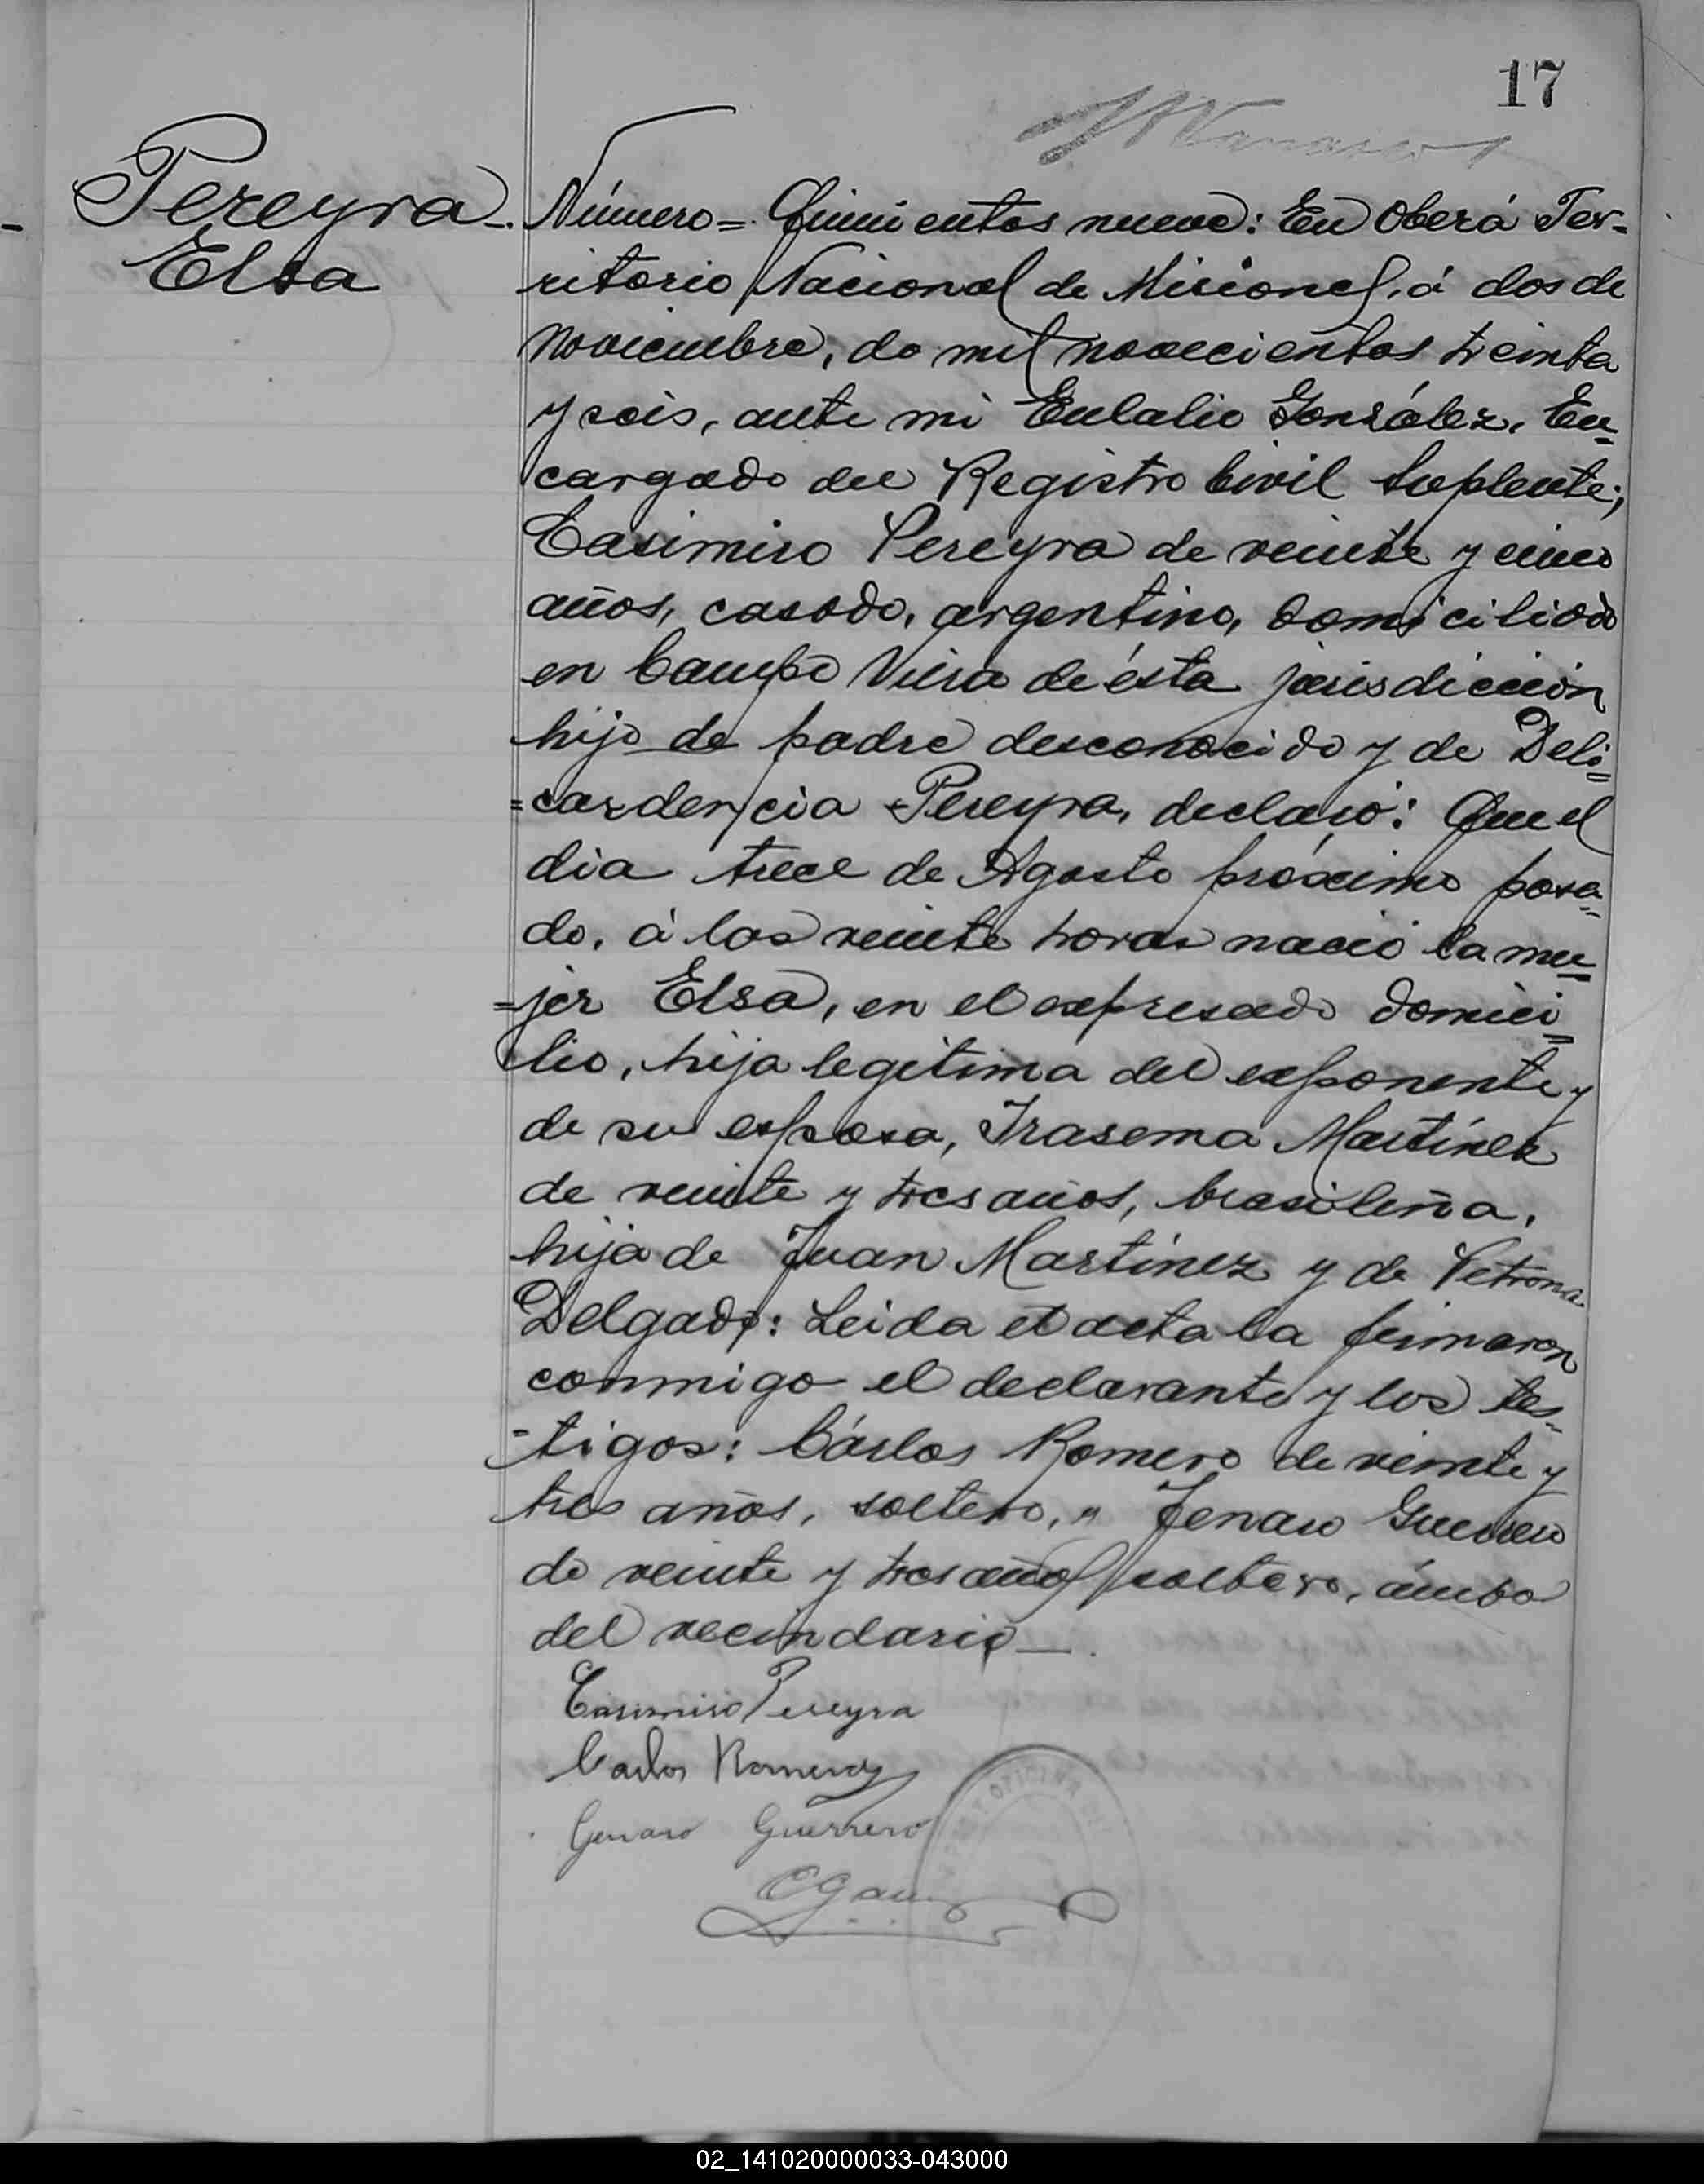 17
Pereyra-
Elsa
Número=. Quinientos nueve: En Oberá Ter-
ritorio Nacional de Misiones, á dos de
Noviembre, de mil novecientos treinta
y seis, ante mi Eulalio González, En=
cargado del Registro Civil Suplente;
Casimiro Pereyra de veinte y cinco
años, casado, argentino, domiciliado
en Campo Viera de ésta jurisdicción
hijo de padre desconocido y de Deli=
=cardencia Pereyra, declaró: Que el
dia trece de Agosto próximo pasa=
do, á las veinte horas nació la mu=
=jer Elsa, en el expresado domici=
lio, hija legitima del exponente y
de su esposa, Irasema Martínez
de veinte y tres años, brasileña,
hija de Juan Martínez y de Petrona
Delgado: Leida el acta la firmaron
conmigo el declarante y los tes-
-tigos: Cárlos Romero de veinte y
tres años, soltero, " Jenaro Guerrero
de veinte y tres años soltero, ámbo
del vecindario—.
Casimiro Pereyra
Carlos Romero
Genaro Guerrero
OFICINA
02_141020000033-043000